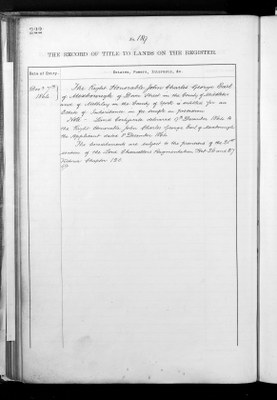 222
No 189
THE RECORD OF TITLE TO LANDS ON THE REGISTER.
Date of Entry.
Estates, Powers, Interests, &c.
1864
The Right Honorable John Charles George Earl
of Mexborough of Dover Street in the County of Middlesex
and of Methley in the County of York is entitled for an
Estate of Inheritance in fee simple in possession
Note - Land Certificate delivered 17th December 1864 to
the Right Honorable John Charles George Earl of Mexborough
the Applicant dated 8th December 1864
The hereditaments are subject to the provisions of the
section of the Lord Chancellors Augmentation Act 26 and 27
Victoria Chapter 120